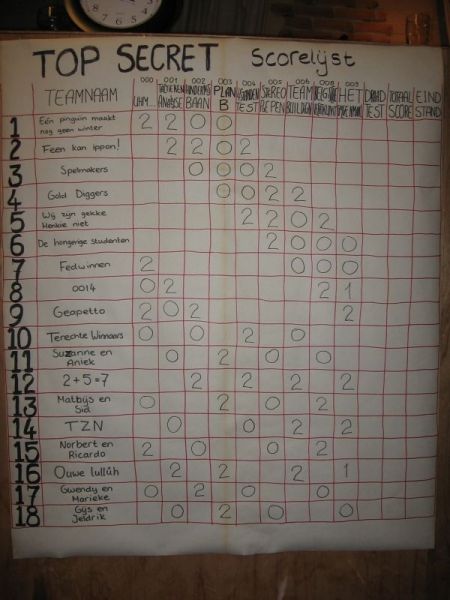 TOP SECRET Scorelijst
000 001 002 003 004 005 006 008 009
TEAMNAAM BAAN PLAN B TEST STEREO TEAM HET TEST TOTAAL SCORE EIND STAND
1 Eén pinguin maakt nog geen winter 2 2 0 0
2 Feen kan ippon! 2 2 0 2
3 Spelmakers 0 0 0 2
4 Gold Diggers 0 0 2 2
5 Wij zijn gekke Henkie niet 2 2 0 2
6 De hongerige studenten 2 0 0 0
7 Fedwinnen 2 0 0 0
8 0014 0 2 2 1
9 Geapetto 2 0 2 2
10 Terechte Winnaars 0 0 2 0
11 Suzanne en Aniek 0 2 0 0
12 2+5=7 2 2 2 2
13 Mathijs en Sid 0 2 0 2
14 TZN 0 0 2 2
15 Norbert en Ricardo 2 0 0 2
16 Ouwe lulluh 2 2 2 1
17 Gwendy en Marieke 0 2 0 0
18 Gijs en 0 2 0 0